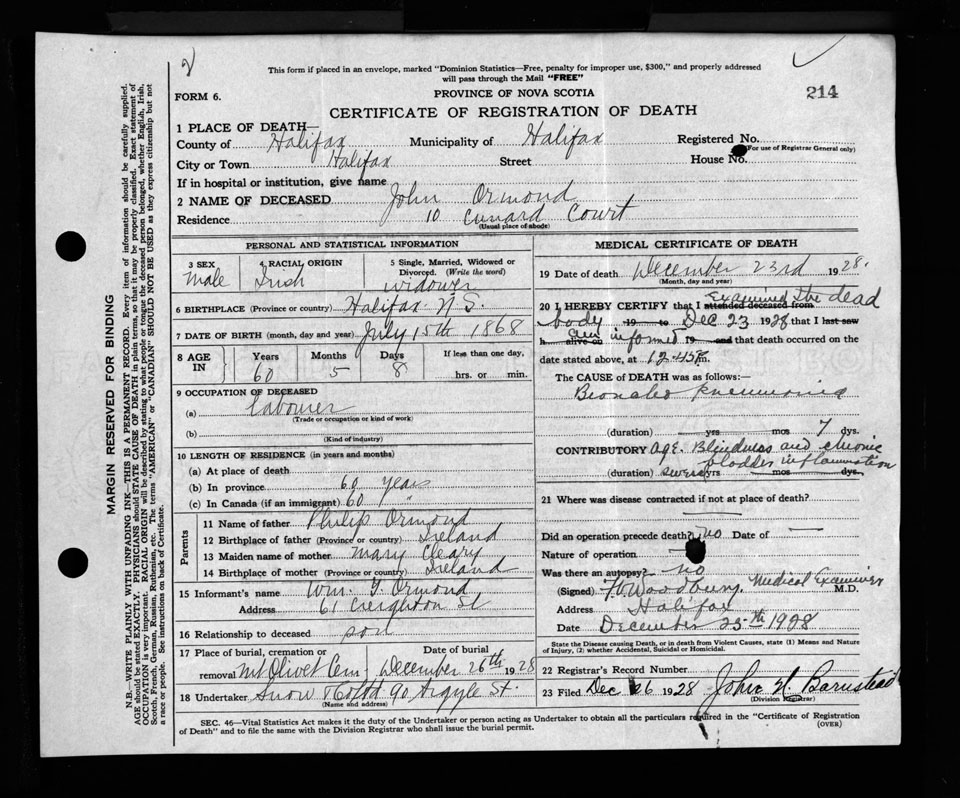 2
This form if placed in an envelope, marked "Dominion Statistics—Free, penalty for improper use, $300," and properly addressed
will pass through the Mail "FREE"
FORM 6.
PROVINCE OF NOVA SCOTIA
214
CERTIFICATE OF REGISTRATION OF DEATH
1 PLACE OF DEATH—
County of Halifax Municipality of Halifax Registered No.
(For use of Registrar General only)
City or Town Halifax Street House No.
If in hospital or institution, give name
2 NAME OF DECEASED John Ormond
Residence 10 Cunard Court
(Usual place of abode)
PERSONAL AND STATISTICAL INFORMATION
3 SEX
Male
4 RACIAL ORIGIN
Irish
5 Single, Married, Widowed or
Divorced. (Write the word)
widower
6 BIRTHPLACE (Province or country) Halifax N.S.
7 DATE OF BIRTH (month, day and year) July 15th 1868
8 AGE IN
Years Months Days If less than one day,
60 5 8 hrs. or min.
9 OCCUPATION OF DECEASED
(a) Labourer
(Trade or occupation or kind of work)
(b)
(Kind of industry)
10 LENGTH OF RESIDENCE (in years and months)
(a) At place of death
(b) In province 60 years
(c) In Canada (if an immigrant) 60 "
Parents
11 Name of father Philip Ormond
12 Birthplace of father (Province or country) Ireland
13 Maiden name of mother Mary Cleary
14 Birthplace of mother (Province or country) Ireland
15 Informant's name Wm. J. Ormond
Address 61 Creighton St
16 Relationship to deceased son
17 Place of burial, cremation or Date of burial
removal Mt Olivet Cem. December 26th 1928
18 Undertaker Snow & Co Ltd 90 Argyle St.
(Name and address)
MEDICAL CERTIFICATE OF DEATH
19 Date of death December 23rd 1928.
(Month, day and year)
20 I HEREBY CERTIFY that I attended deceased from examined the dead
body 19 to Dec 23 1928 that I last saw
h alive on informed 19 and that death occurred on the
date stated above, at 12.45 P.m.
The CAUSE of DEATH was as follows:—
Broncho pneumonia
(duration) yrs mos 7 dys.
CONTRIBUTORY Age. Blindness and chronic
bladder inflamation
(duration) several yrs mos dys.
21 Where was disease contracted if not at place of death?
Did an operation precede death? no Date of —
Nature of operation
Was there an autopsy? no
(Signed) Woodbury, Medical Examiner M.D.
Address Halifax
Date December 23th 1928
State the Disease causing Death, or in death from Violent Causes, state (1) Means and Nature
of Injury, (2) whether Accidental, Suicidal or Homicidal.
22 Registrar's Record Number
23 Filed Dec 26 1928 John H Barnstead
(Division Registrar)
SEC. 46—Vital Statistics Act makes it the duty of the Undertaker or person acting as Undertaker to obtain all the particulars required in the "Certificate of Registration
of Death" and to file the same with the Division Registrar who shall issue the burial permit.
(OVER)
MARGIN RESERVED FOR BINDING
N.B.—WRITE PLAINLY WITH UNFADING INK—THIS IS A PERMANENT RECORD. Every item of information should be carefully supplied.
AGE should be stated EXACTLY. PHYSICIANS should STATE CAUSE OF DEATH in plain terms, so that it may be properly classified. Exact statement of
OCCUPATION is very important. RACIAL ORIGIN will be described by stating to what people or tongue the deceased person belonged, whether English, Irish,
Scotch, French, German, Russian, Ruthenian, etc. The terms "AMERICAN" or "CANADIAN" SHOULD NOT BE USED as they express citizenship but not
a race or people. See instructions on back of Certificate.